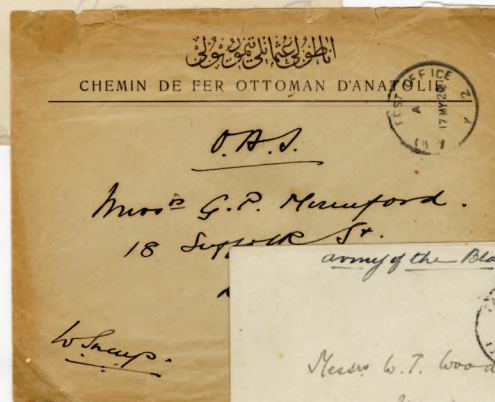 اناطولی عثمانلی تیمور یولی
CHEMIN DE FER OTTOMAN D'ANATOLIE
FIELD POST OFFICE
A
17 MY 20
O.A.S.
Messrs G. P. Mumford.
18 Suffolk St.
army of the Bla
Messrs W. T. Wood